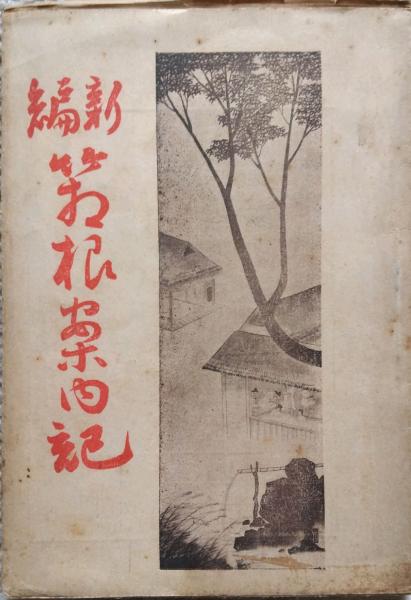 新編
箱根案内記